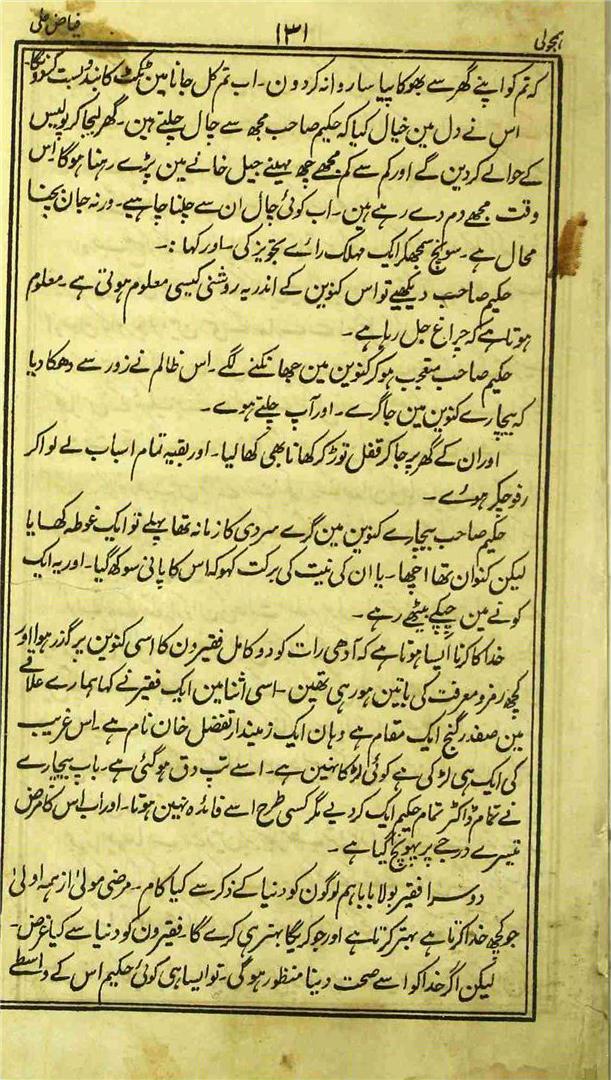 ہمجولی ۱۳۱ فیاض علی
کہ تم کو اپنے گھر سے بھوکا پیاسا روانہ کردون۔ اب تم کل جانا مین ٹکٹ کا بندوبست کردونگا۔
اس نے دل مین خیال کیا کہ حکیم صاحب مجھ سے چال چلتے ہین۔ گھر لیجا کر پولیس
کے حوالے کردین گے اور کم سے کم مجھے چھ مہینے جیل خانے مین پڑے رہنا ہوگا اس
وقت مجھے دم دے رہے ہین۔ اب کوئی چال ان سے چلنا چاہیے۔ ورنہ جان بچنا
محال ہے۔ سونچ سمجھکر ایک مہلک رائے تجویز کی۔ اور کہا :۔
حکیم صاحب دیکھیے تو اس کنوین کے اندر یہ روشنی کیسی معلوم ہوتی ہے۔ معلوم
ہوتا ہے کہ چراغ جل رہا ہے۔
حکیم صاحب متعجب ہو کر کنوین مین جھانکنے لگے۔ اس ظالم نے زور سے دھکا دیا
کہ بیچارے کنوین مین جا گرے۔ اور آپ چلتے ہوے۔
اور ان کے گھر پر جا کر قفل توڑ کر کھانا بھی کھا لیا۔ اور بقیہ تمام اسباب لے لوا کر
رفو چکر ہوئے۔
حکیم صاحب بیچارے کنوین مین گرے سردی کا زمانہ تھا پہلے تو ایک غوطہ کھایا
لیکن کنوان تھا اچھا۔ یا ان کی نیت کی برکت کہو کہ اس کا پانی سوکھ گیا۔ اور یہ ایک
کونے مین چپکے بیٹھے رہے۔
خدا کا کرنا ایسا ہوتا ہے کہ آدھی رات کو دو کامل فقیرون کا اسی کنوین پر گذر ہوا اور
کچھ رمز و معرفت کی باتین ہو رہی تھین۔ اسی اثنا مین ایک فقیر نے کہا ہمارے علاقے
مین صفدر گنج ایک مقام ہے وہان ایک زمیندار تفضل خان نام ہے۔ اس غریب
کی ایک ہی لڑکی ہے کوئی لڑکا نہین ہے۔ اسے تپ دق ہوگئی ہے۔ باپ بیچارے
نے تمام ڈاکٹر تمام حکیم ایک کردیے مگر کسی طرح اسے فائدہ نہین ہوتا۔ اور اب اس کا مرض
تیسرے درجے پر پہونچ گیا ہے۔
دوسرا فقیر بولا بابا ہم لوگون کو دنیا کے ذکر سے کیا کام۔ مرضی مولیٰ از ہمہ اولیٰ
جو کچھ خدا کرتا ہے بہتر کرتا ہے اور جو کریگا بہتر ہی کرے گا۔ فقیرون کو دنیا سے کیا غرض۔
لیکن اگر خدا کو اسے صحت دینا منظور ہوگی۔ تو ایسا ہی کوئی حکیم اس کے واسطے